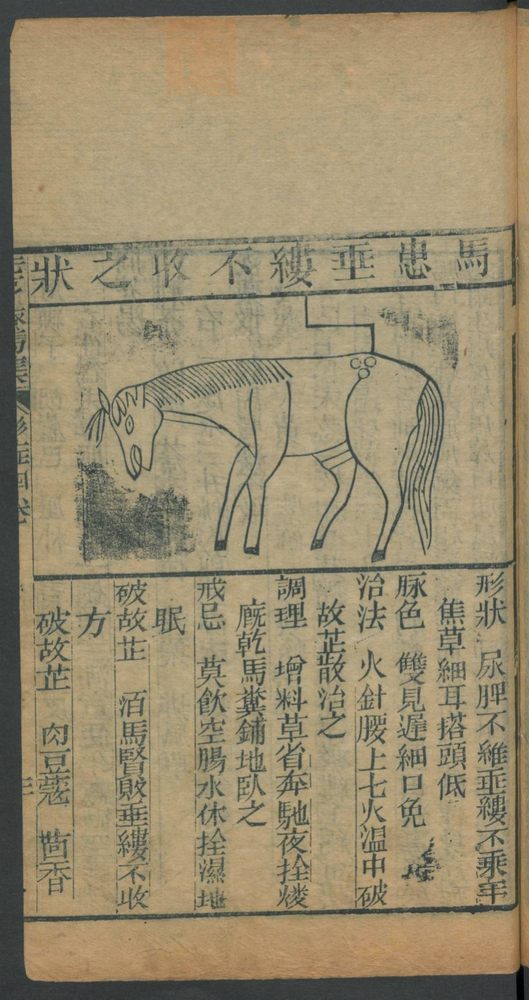 馬患垂縷不收之狀
形狀 尿脬不維垂縷不乘牽
焦草細耳搭頭低
脉色 雙見遲細口免
治法 火針腰上七火温中破
故芷散治之
調理 增料草省奔馳夜拴煖
廐乾馬糞鋪地臥之
戒忌 莫飲空腸水休拴濕地
眠
破故芷 治馬腎敗垂縷不收
方
破故芷 肉豆蔻 茴香